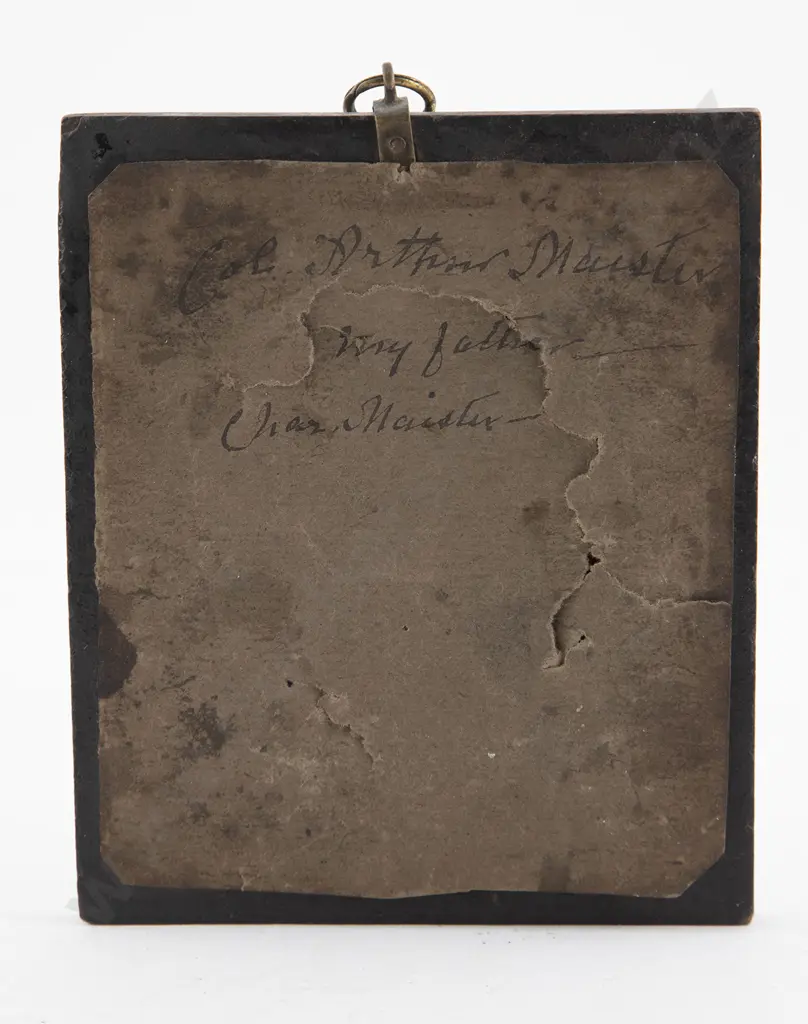 Col. Arthur Maister
my father
Chas. Maister